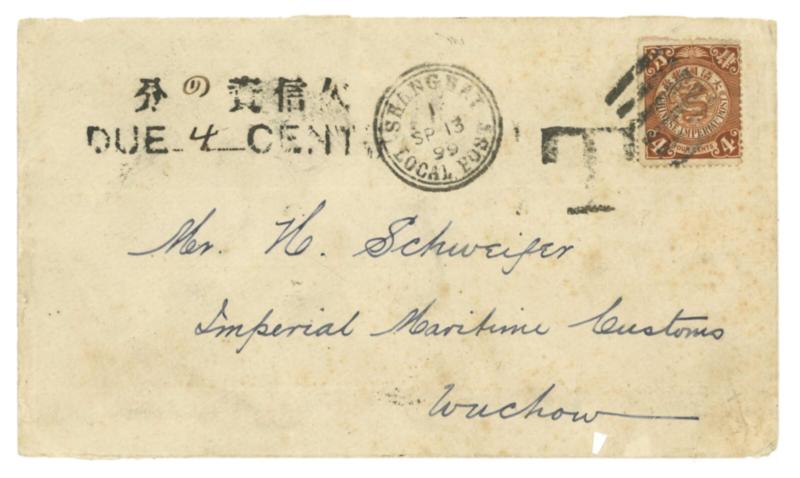 欠信資 の 分
DUE 4 CENT
SHANGHAI
SP 13
99
LOCAL POST
T
4 4
IMPERIAL POST
FOUR CENTS
4 4
Mr. H. Schweiger
Imperial Maritime Customs
Wuchow